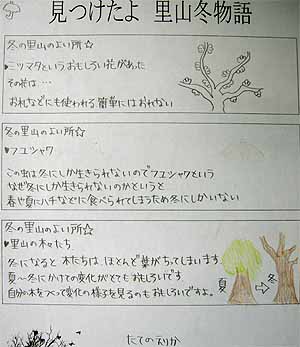 見つけたよ 里山冬物語
冬の里山のよい所☆
ミツマタというおもしろい花があった
その花は…
お札などにも使われる簡単にはおれない
冬の里山のよい所☆
♥フユシャク
この虫は冬にしか生きられないのでフユシャクという
なぜ冬にしか生きられないのかというと
春や夏にハチなどに食べられてしまうため冬にしかいない
冬の里山のよい所☆
♥里山の木々たち
冬になると木たちは、ほとんど葉がちってしまいます
夏～冬にかけての変化がとてもおもしろいです
自分の木をつくって変化の様子を見るのもおもしろいですよ。
夏 ⇨ 冬
たての えりか